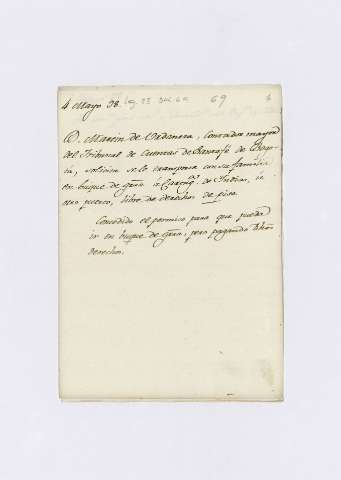 4 Mayo 98. Leg. 23 69 1
D. Martin de Urdaneta, Contador mayor
del Tribunal de Cuentas de Santafé de Bogo-
ta, solicita se le transporte con su familia
en buque de grra á Cartagª de Indias, ú
otro puerto, libre de derechos de pisa
Concedido el permiso para que pueda
ir en buque de grra, pero pagando dhos
derechos.